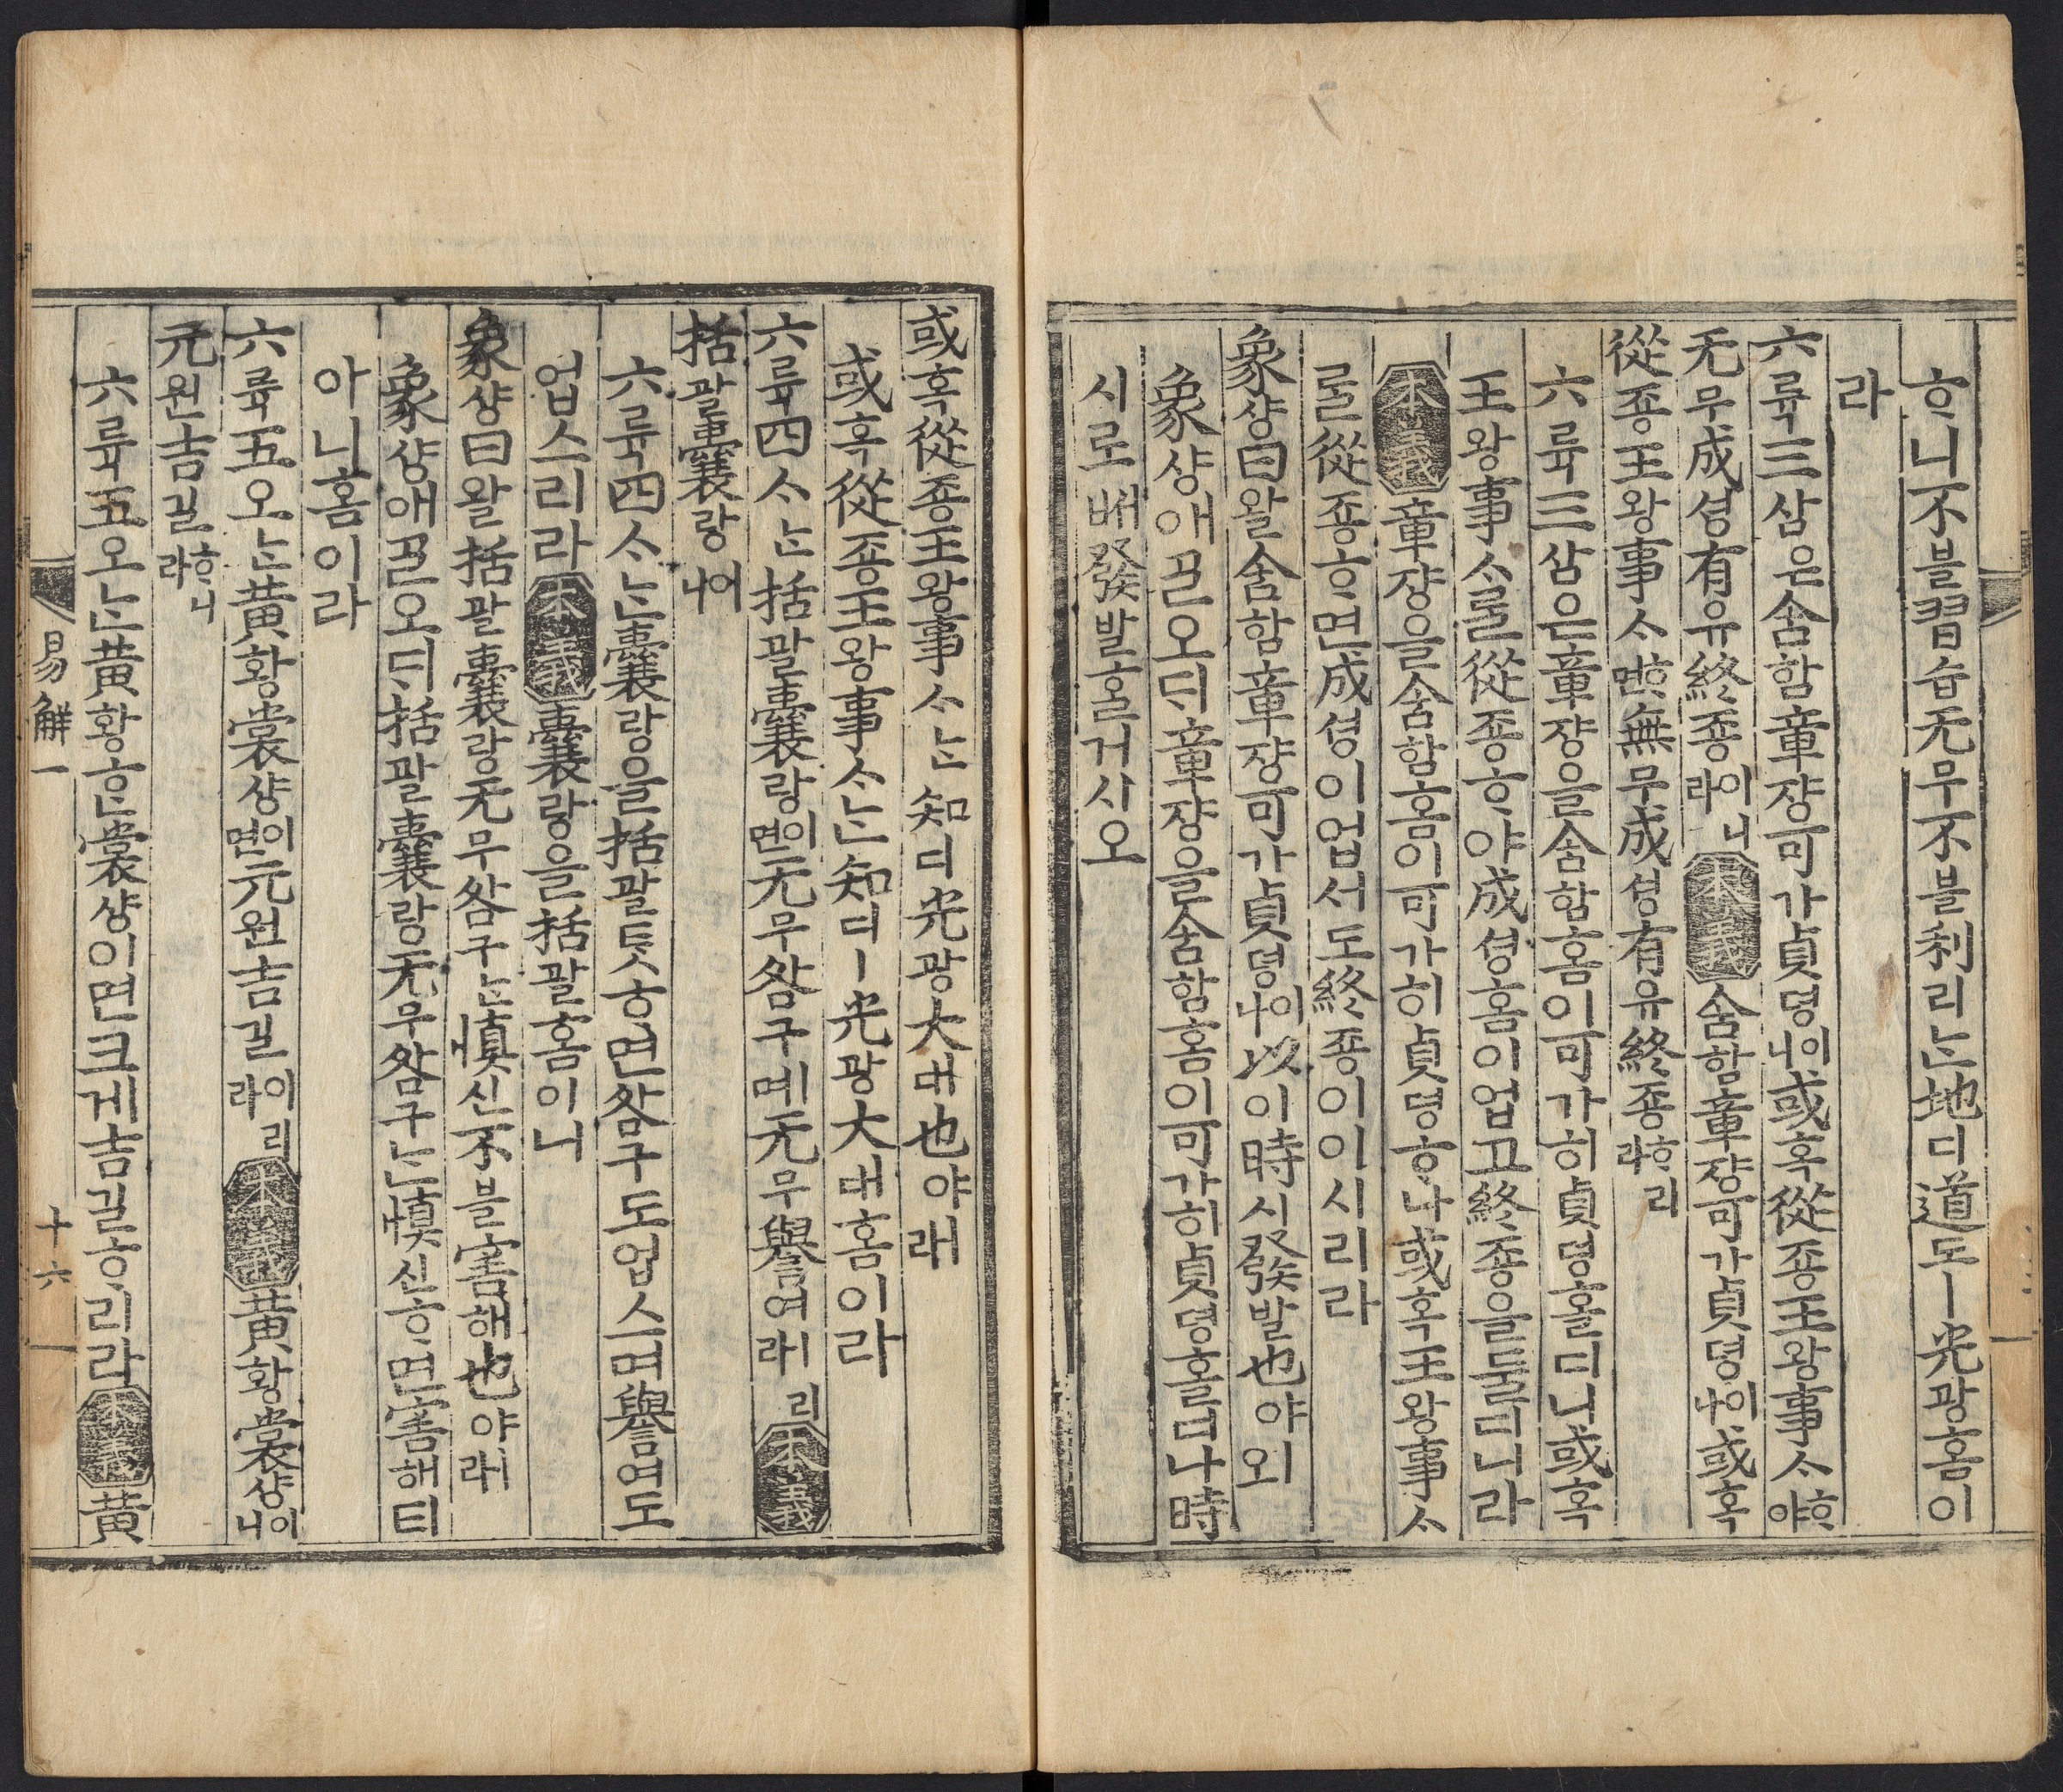 ᄒᆞ니不블習습无무不블利리ᄂᆞᆫ地디道도ㅣ光광홈이
라
六륙三삼은含함章쟝可가貞뎡이니或혹從죵王왕事ᄉᆞᄒᆞ야
无무成셩有유終죵이니라本義含함章쟝可가貞뎡이나或혹
從죵王왕事ᄉᆞᄒᆞ면無무成셩有유終죵ᄒᆞ리라
六륙三삼은章쟝을含함홈이可가히貞뎡홀디니或혹
王왕事ᄉᆞᄅᆞᆯ從죵ᄒᆞ야成셩홈이업고終죵을둘디니라
本義章쟝을含함홈이可가히貞뎡ᄒᆞ나或혹王왕事ᄉᆞ
ᄅᆞᆯ從죵ᄒᆞ면成셩이업서도終죵이이시리라
象샹曰왈含함章쟝可가貞뎡이나以이時시發발也야ㅣ오
象샹애ᄀᆞᆯ오ᄃᆡ章쟝을含함홈이可가히貞뎡홀디나時
시로ᄡᅥ發발홀거시오
或혹從죵王왕事ᄉᆞᄂᆞᆫ知디光광大대也야ㅣ라
或혹從죵王왕事ᄉᆞᄂᆞᆫ知디ㅣ光광大대홈이라
六륙四ᄉᆞᄂᆞᆫ括괄囊랑이면无무咎구ㅣ며无무譽예리라本義
括괄囊랑이니
六륙四ᄉᆞᄂᆞᆫ囊랑을括괄ᄐᆞᆺᄒᆞ면咎구도업스며譽여도
업스리라本義囊랑을括괄홈이니
象샹曰왈括괄囊랑无무咎구ᄂᆞᆫ愼신不블害해也야ㅣ라
象샹애ᄀᆞᆯ오ᄃᆡ括괄囊랑无무咎구ᄂᆞᆫ愼신ᄒᆞ면害해티
아니홈이라
六륙五오ᄂᆞᆫ黃황裳샹이면元원吉길이리라本義黃황裳샹이니
元원吉길ᄒᆞ니라
六륙五오ᄂᆞᆫ黃황ᄒᆞᆫ裳샹이면크게吉길ᄒᆞ리라本義黃
易解一
十六